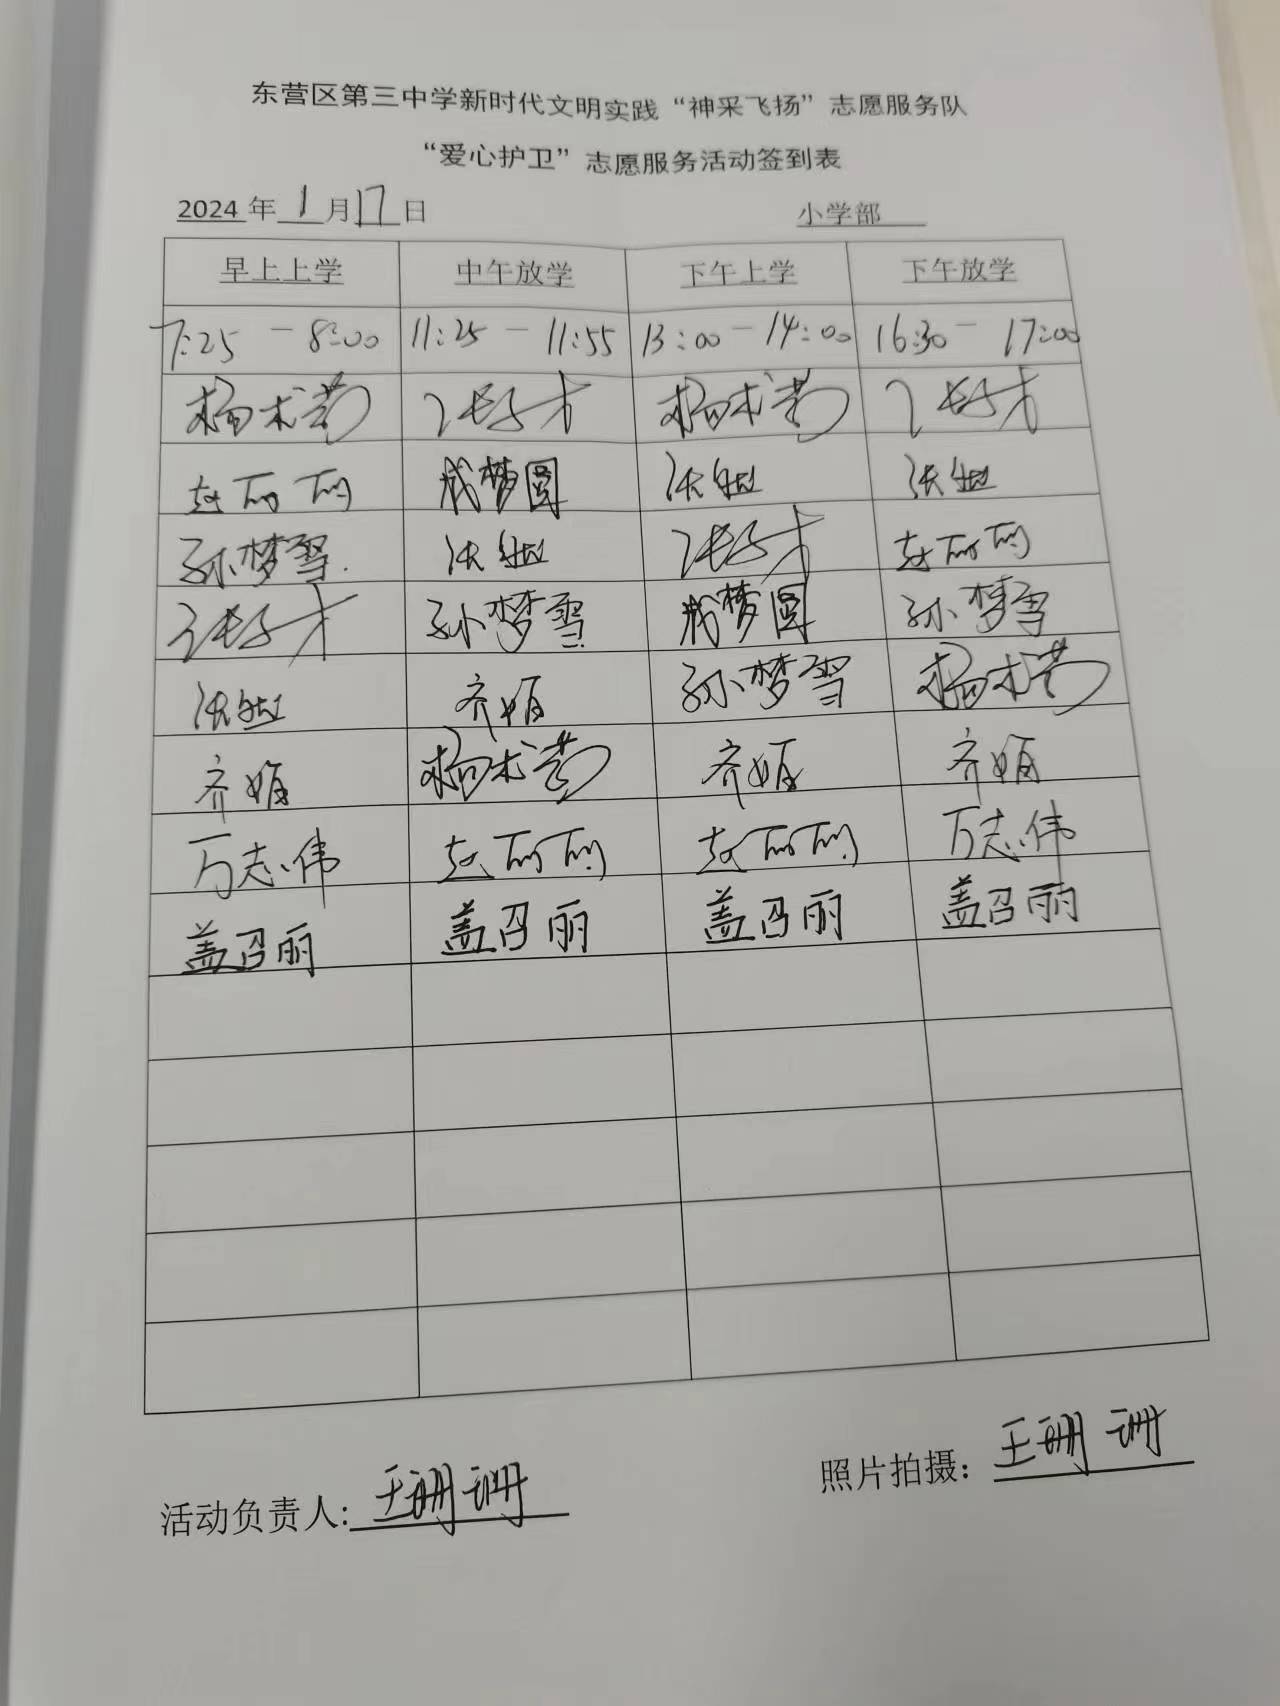 东营区第三中学新时代文明实践“神采飞扬”志愿服务队
“爱心护卫”志愿服务活动签到表
2024 年 1 月 17 日 小学部
早上上学 中午放学 下午上学 下午放学
7:25 — 8:00 11:25 — 11:55 13:00 — 14:00 16:30 — 17:00
杨术芳 杨术芳
赵丽丽 成梦圆
孙梦雪 赵丽丽
孙梦雪 成梦圆 孙梦雪
齐娟 孙梦雪 杨术芳
齐娟 杨术芳 齐娟 齐娟
万志伟 赵丽丽 赵丽丽 万志伟
盖召丽 盖召丽 盖召丽 盖召丽
活动负责人: 王珊珊 照片拍摄: 王珊珊